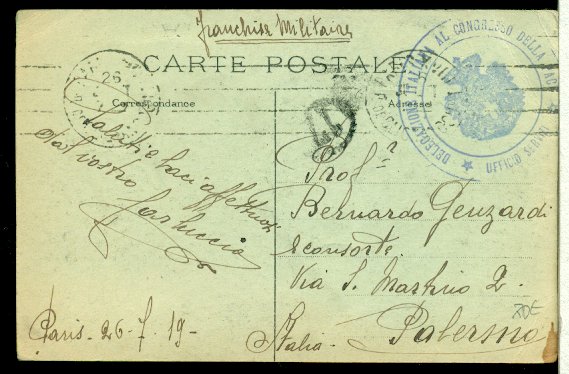 Franchise Militaire
CARTE POSTALE
Correspondance
Adresse
DELEGAZIONE ITALIANA AL CONGRESSO DELLA
UFFICIO
26
Saluti e baci affettuosi
dal vostro
Prof.r
Bernardo Genzardi
e consorte
Via S. Martino 2.
Palermo
Italia.
Paris-26-7.19-
80€